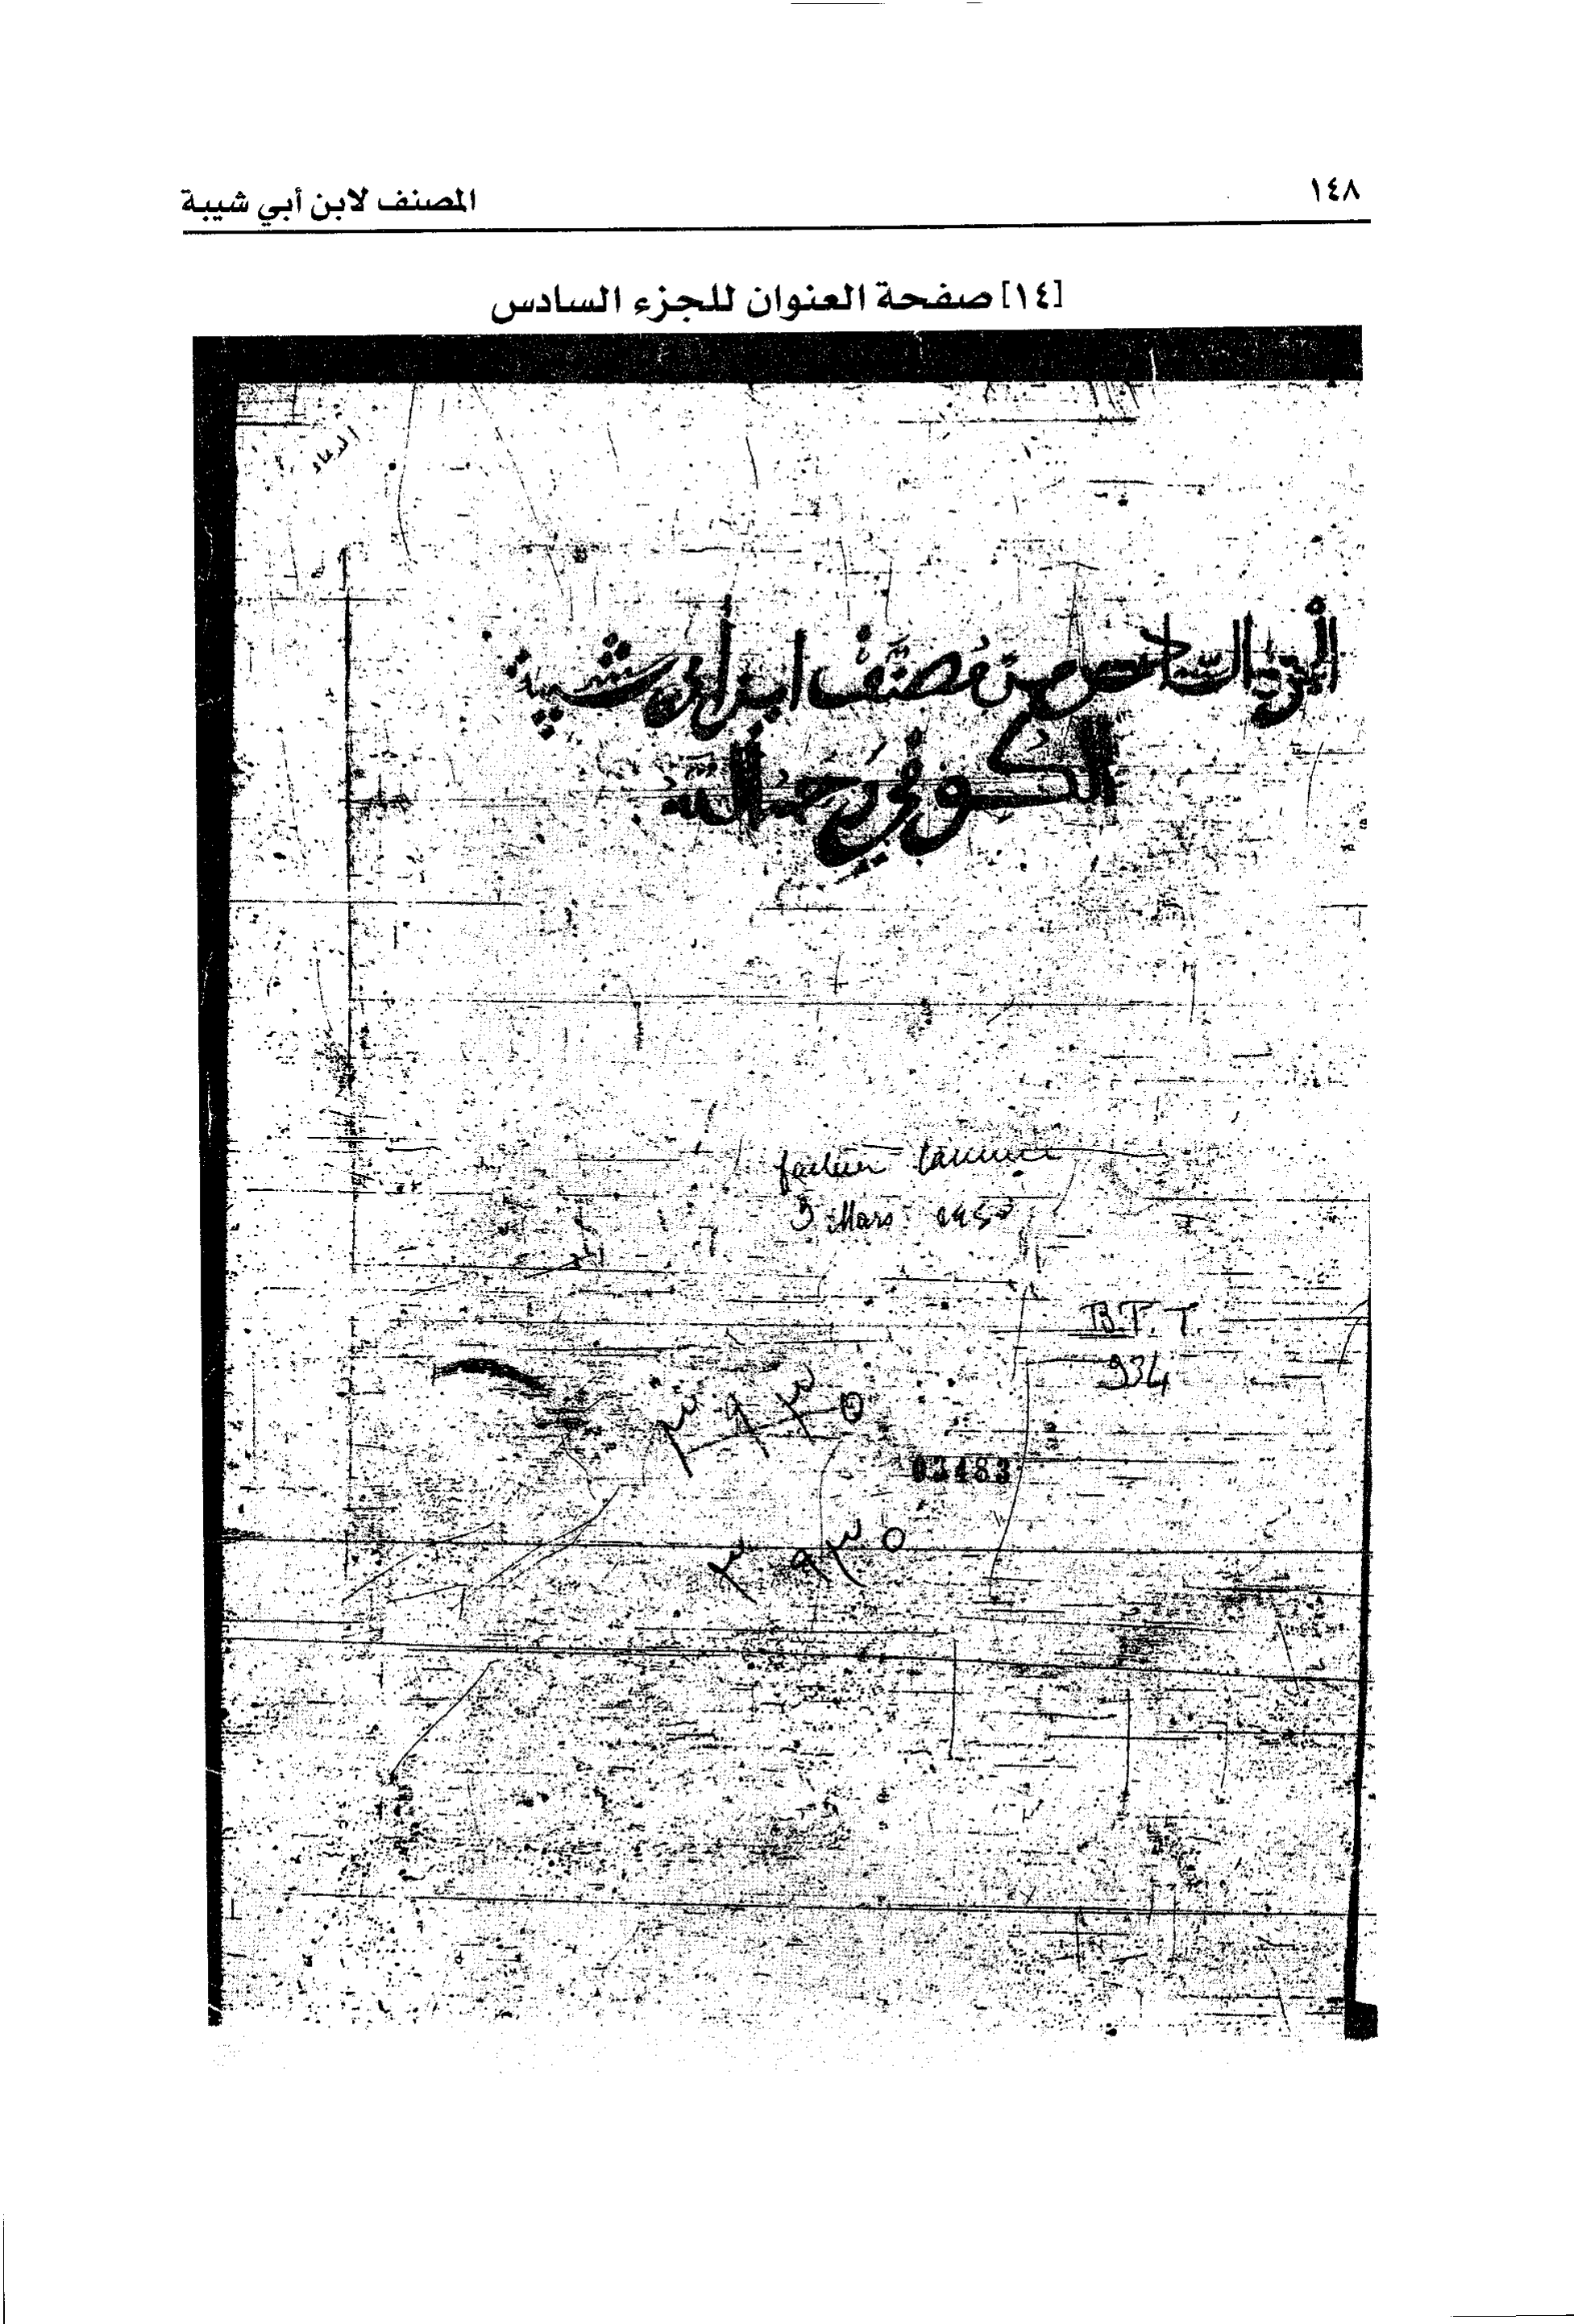 ١٤٨
المصنف لابن أبي شيبة
[١٤] صفحة العنوان للجزء السادس
الدعاء
الجزء السادس من مصنف ابن أبي شيبة
الكوفي رحمه الله
3 Mars
B.T.T.
934
٣٩٣٥
03483
٣٩٣٥